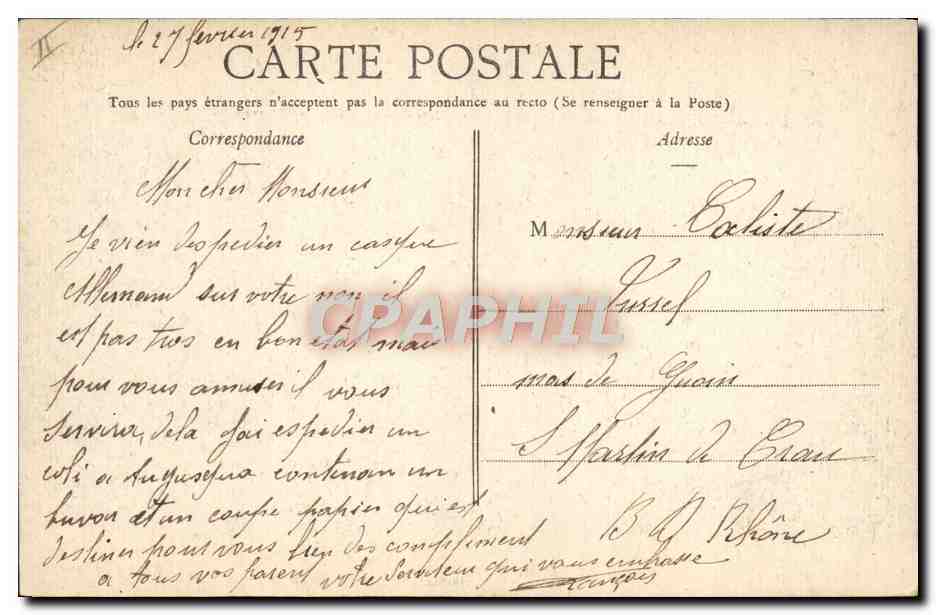 II
le 27 fevrier 1915
CARTE POSTALE
Tous les pays étrangers n'acceptent pas la correspondance au recto (Se renseigner à la Poste)
Correspondance
Mon cher Monsieur
Je vien despedier un casque
Allemand sur votre non il
est pas tros en bon état mais
pour vous amuser il vous
servira, dela jai espedier un
coli a contenan un
buvor et un coupe papier qui est
destiner pour vous bien des complement
a tous vos parent votre serviteur qui vous embrasse
François
Adresse
Monsieur Caliste
Tussel
mas de
St Martin de Crau
B D Rhône
CPAPHIL